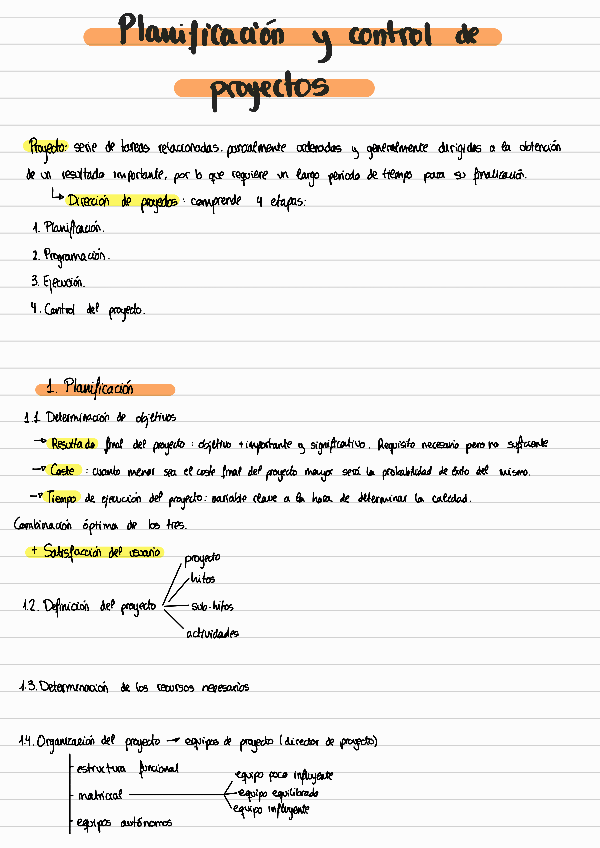 Planificación y control de
proyectos
Proyecto: serie de tareas relacionadas, parcialmente ordenadas y generalmente dirigidas a la obtención
de un resultado importante, por lo que requiere un largo periodo de tiempo para su finalización.
↳ Dirección de proyectos: comprende 4 etapas:
1. Planificación.
2. Programación.
3. Ejecución.
4. Control del proyecto.
1. Planificación
1.1 Determinación de objetivos
→ Resultado final del proyecto: objetivo + importante y significativo. Requisito necesario pero no suficiente
→ Coste: cuanto menor sea el coste final del proyecto mayor será la probabilidad de éxito del mismo.
→ Tiempo de ejecución del proyecto: variable clave a la hora de determinar la calidad.
Combinación óptima de los tres.
+ Satisfacción del usuario
proyecto
hitos
1.2. Definición del proyecto
sub-hitos
actividades
1.3. Determinación de los recursos necesarios
1.4. Organización del proyecto → equipos de proyecto (director de proyecto)
estructura funcional
equipo poco influyente
matricial
equipo equilibrado
equipo influyente
equipos autónomos